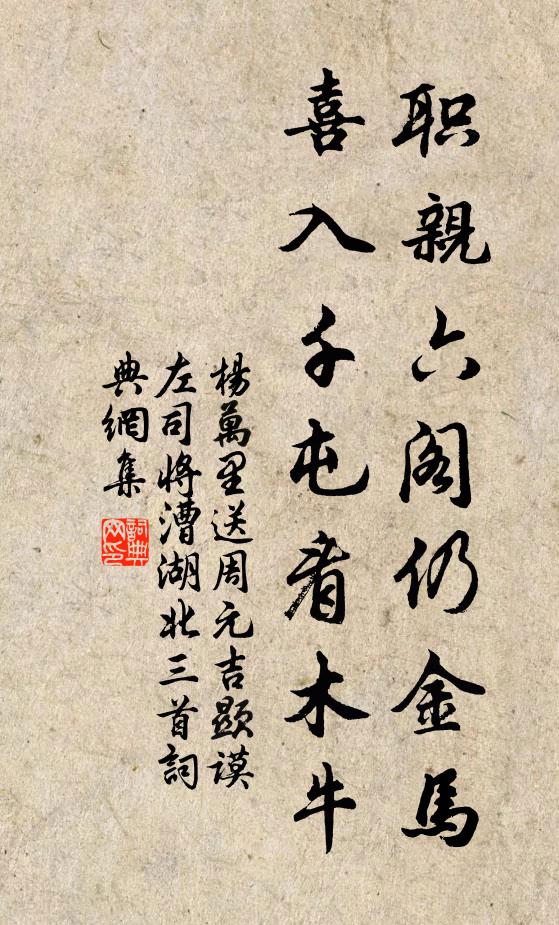 职親六阁仍金馬
喜入千屯看木牛
楊萬里送周元吉顯謨
左司將漕湖北三首詞
典網集
詞典網印